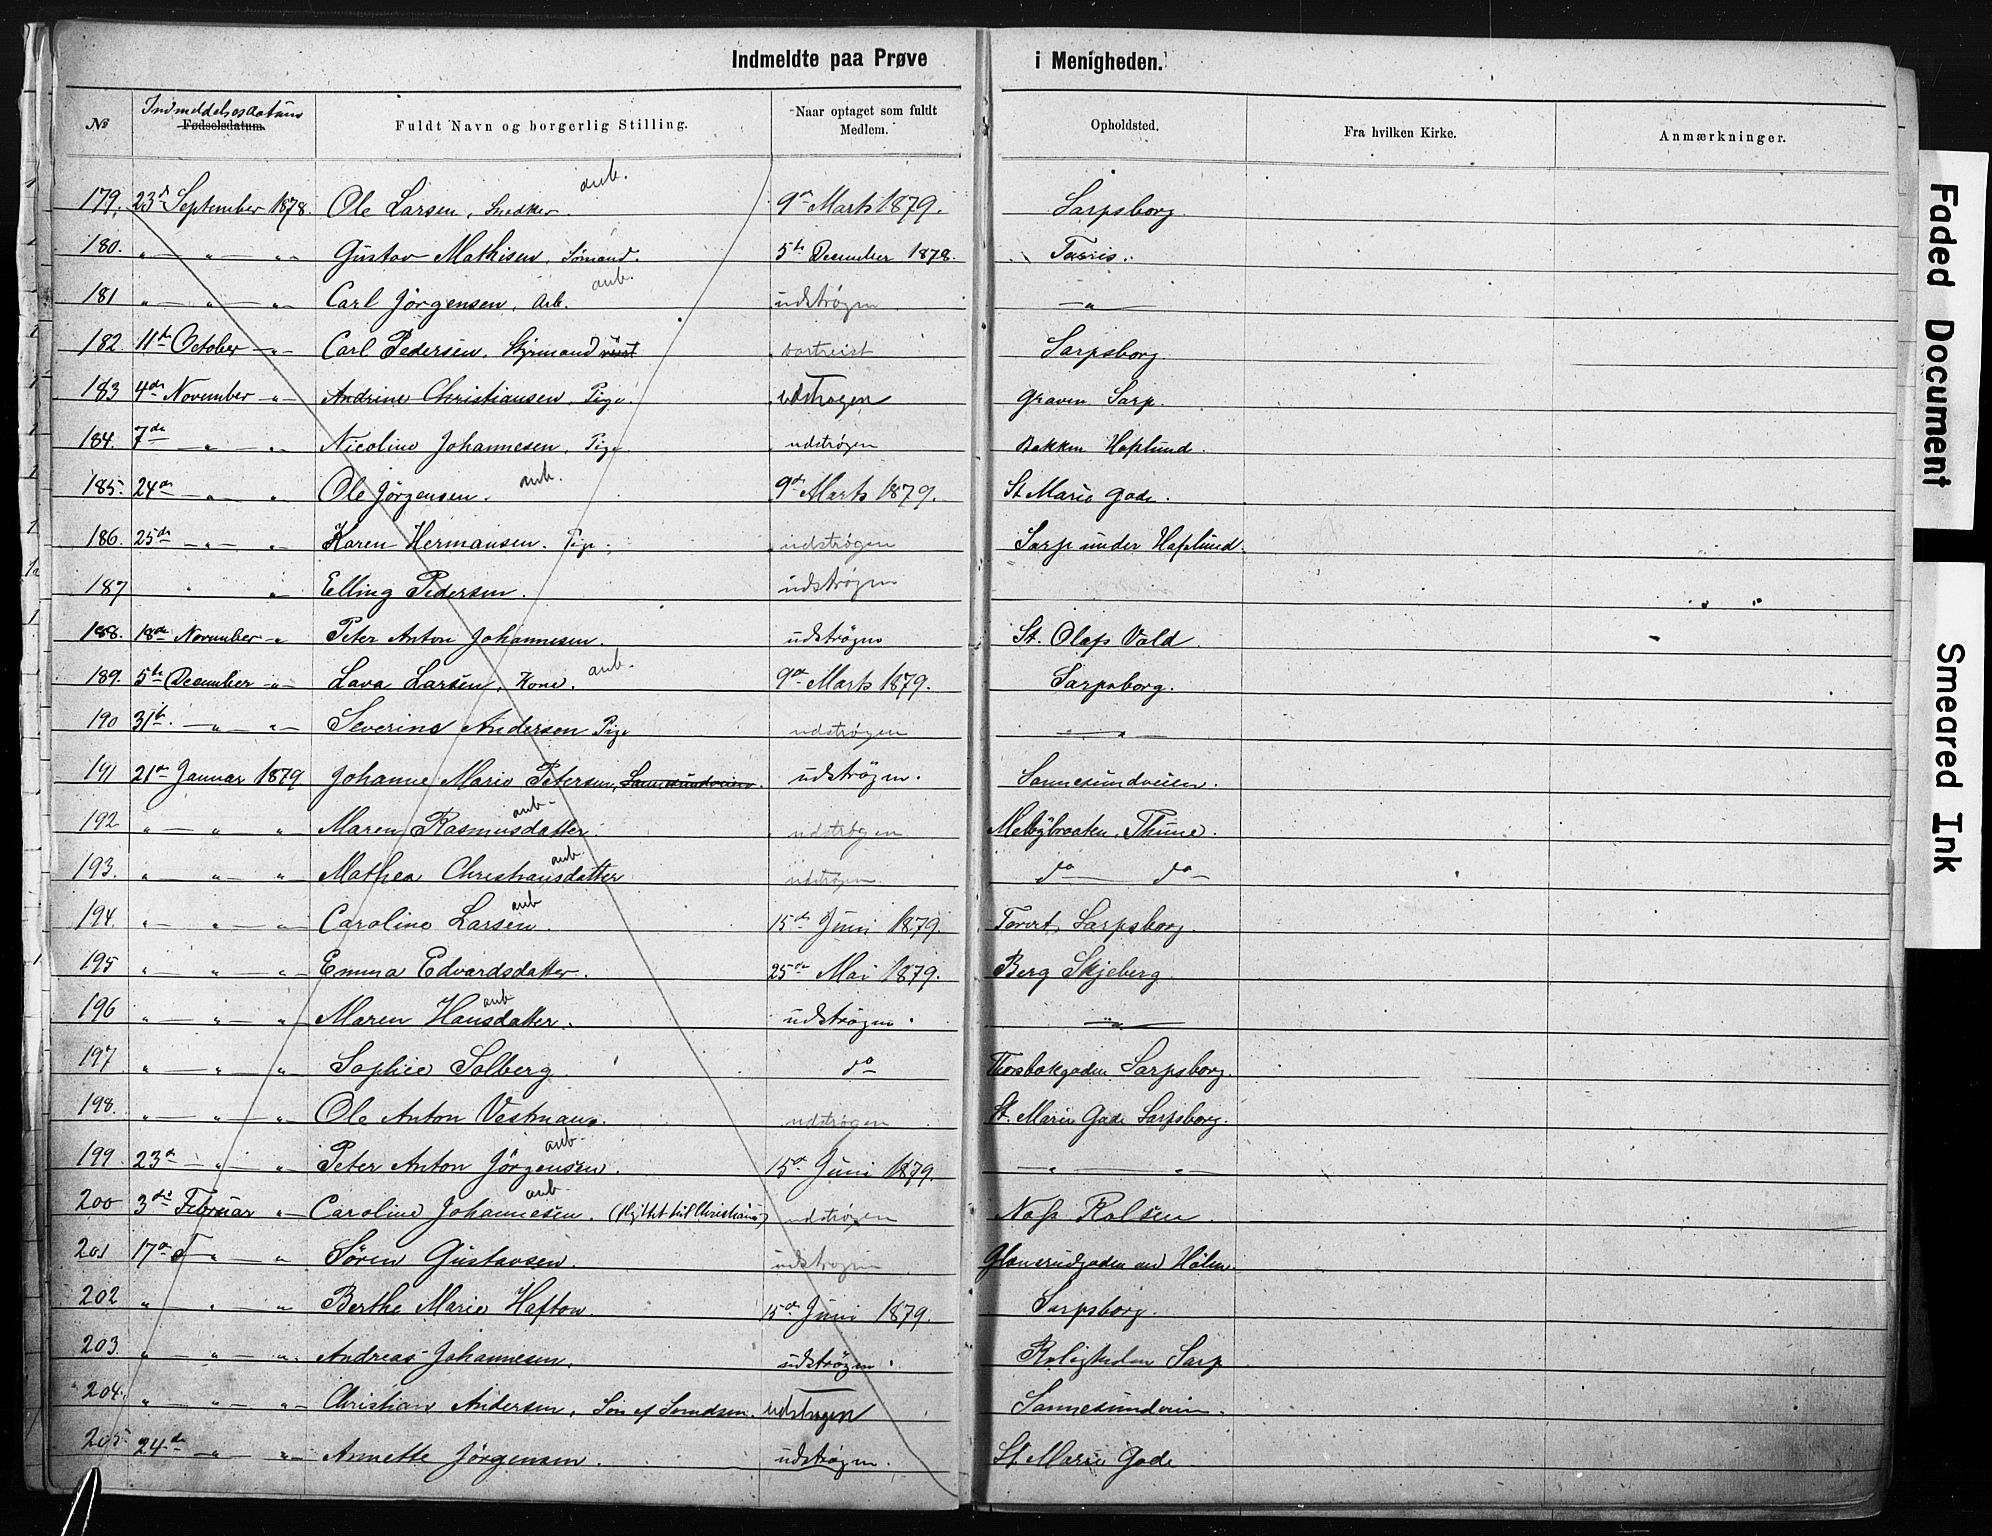 Indmeldte paa Prøve i Menigheden.
Indmeldelsesdatum
№ Fødselsdatum. Fuldt Navn og borgerlig Stilling. Naar optaget som fuldt Medlem. Opholdsted. Fra hvilken Kirke. Anmærkninger.
179. 23de September 1878. Ole Larsen, Snedker. anb. 9de Marts 1879. Sarpsborg.
180. „ — „ — „ — Gustav Mathisen, Sømand. 5te December 1878.
181 „ — „ — „ — Carl Jörgensen, Arb. anb. udströgen — „ —
182. 11te October — „ — Carl Pedersen, Styrmand reist bortreist Sarpsborg.
183 4de November — „ — Andrine Christiansen, Pige. udstrogen Graven Sarp.
184. 7de — „ — „ — Nicoline Johannesen, Pige. udströgen Bakken Haflund.
185. 24de — „ — „ Ole Jörgensen. anb. 9de Marts 1879. St Marie Gade.
186. 25de — „ — „ — Karen Hermansen. Pige. udströgen Sarp under Haflund.
187 „ „ Elling Pedersen. udströgen
188. 18de November — „ Peter Anton Johannesen. udströgen St. Olafs Vold
189. 5te December — „ — Lava Larsen, Kone. anb. 9de Marts 1879. Sarpsborg.
190 31te. — „ — „ — Severine Andersen Pige udströgen — „ —
191 21de Januar 1879. Johanne Marie Petersen, Sannesundveien. udströgen. Sannesundveien.
192 „ — „ — „ Maren Rasmusdatter. anb. udströgen Melbybraaten, Thune.
193. „ — „ — „ Mathea Christiansdatter anb. udströgen do — do —
194. „ — „ — „ — Caroline Larsen. anb 15de Juni 1879. Torvet, Sarpsborg.
195 „ — „ — „ — Emma Edvardsdatter. 25de Mai 1879. Berg Skjeberg.
196 „ — „ — „ — Maren Hansdatter. anb udströgen. — „ —
197 „ — „ — „ — Sophie Solberg. do Sarpsborg.
198. „ — „ — „ — Ole Anton Vestman. udströgen St. Marie Gade Sarpsborg.
199. 23de — „ — „ Peter Anton Jörgensen. anb. 15de Juni 1879. — „ — „ —
200 3die Februar „ — Caroline Johannesen. anb. (flyttet til Christiania) udströgen
201 17de „ — „ Sören Gustavsen. udströgen
202 „ — „ — „ Berthe Marie Hafton. 15de Juni 1879. Sarpsborg.
203. „ — „ — „ Andreas Johannesen. udströgen. Roligheden Sarp
204. „ — „ — „ — Christian Andersen, udstrogen Sannesundveien.
205 24de — „ — „ — Annette Jörgensen. udströgen. St Marie Gade
Faded Document
Smeared Ink